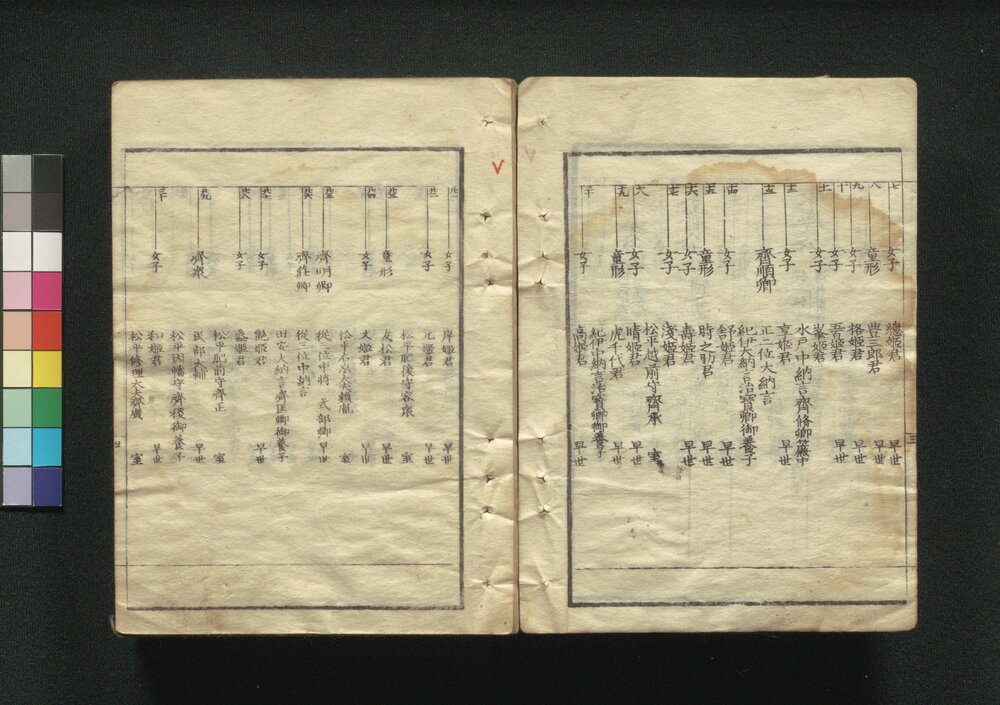 七 女子 總姫君 早世
八 童形 豊三郎君 早世
九 女子 格姫君 早世
十 女子 吾姫君 早世
十一 女子 峯姫君
水戸中納言齊脩卿簾中
十二 女子 享姫君 早世
十三 齊順卿 正二位大納言
紀伊大納言治寶卿御養子
十四 女子 舒姫君 早世
十五 童形 時之助君 早世
十六 女子 壽姫君 早世
十七 女子 淺姫君
松平越前守齊承 室
十八 女子 晴姫君 早世
十九 童形 虎千代君 早世
紀伊中納言治寶卿御養子
二十 女子 高姫君 早世
三
廿一 女子 岸姫君 早世
廿二 女子 元姫君 早世
松平肥後守容衆 室
廿三 童形 友松君 早世
廿四 女子 文姫君 早世
松平右京大夫頼胤 室
廿五 齊明卿 從三位中將 式部卿 早世
廿六 齊荘卿 從二位中納言
田安大納言齊匡卿御養子
廿七 女子 艶姫君 早世
廿八 女子 盛姫君
松平肥前守齊正 室
廿九 齊衆 民部大輔 早世
松平因幡守齊稷御養子
三十 女子 和姫君
松平修理大夫齊廣 室
四